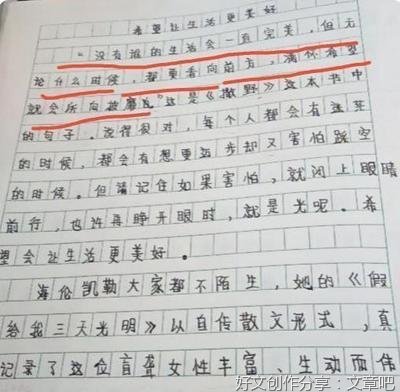 希望让生活更美好
“没有谁的生活会一直完美，但无
论什么时候，都要看向前方，满怀希望
就会所向披靡。”这是《撒野》这本书中
的句子。说得很对，每个人都会有迷茫
的时候，都会有想更进步却又害怕踩空
的时候。但请记住如果害怕，就闭上眼睛
前行，也许再睁开眼时，就是光呢。希
望会让生活更美好。
海伦凯勒大家都不陌生，她的《假
给我三天光明》以自传散文形式，真
记录了这位盲聋女性丰富、生动而伟
好文创作分享：文章吧